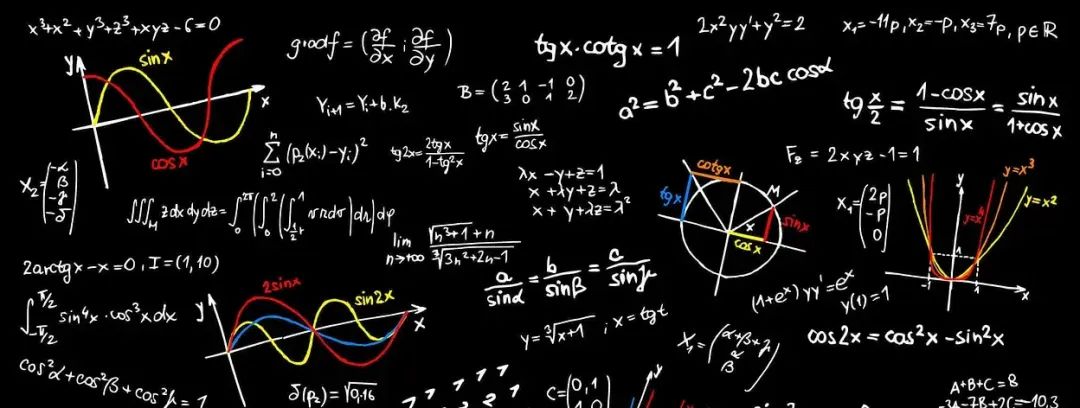 x³+x²+y³+z³+xyz-6=0
y
sinx
x
cosx
grodf = (∂f/∂x ; ∂f/∂y)
tgx·cotgx=1
2x²yy'+y²=2
x₁=-11p, x₂=-p, x₃=7p, p∈ℝ
Yᵢ₊₁=Yᵢ+b·K₂
B=(2 1 -1 0
3 0 1 2)
a²=b²+c²-2bc cosα
tg x/2 = (1-cosx)/sinx = sinx/(1+cosx)
∑ⁿᵢ₌₀ (p₂(xᵢ)-yᵢ)²
tg2x=2tgx/(1-tg²x)
tgx=sinx/cosx
F₂=2xyz-1=1
X₂=(-α
β
-γ
-δ)
λx-y+z=1
x+λy+z=λ
x+y+λz=λ²
cotgx
tgx
M
sinx
x
cosx
X₁=(2p
-p
0)
y
y=x³
y=x⁴
y=x²
1
-1
1
x
∭ₘ z dx dy dz =
lim n→+∞ (√(n³+1)+n)/∛(3n²+2n-1)
2arctgx-x=0, I=(1,10)
a/sinα = b/sinβ = c/sinγ
(1+eˣ)yy'=eˣ
y(1)=1
∫ π/2 -π/2 sin⁴x·cos³xdx
y
2sinx
sin2x
x
y=∛(x+1) ; x=tgt
X₁=(α+β+γ
α
β)
cos2x=cos²x-sin²x
cos²α+cos²β+cos²γ=1
∂(p₂)=√0,16
C=(0,1
A+B+C=8
-3A-7B+2C=-10,3